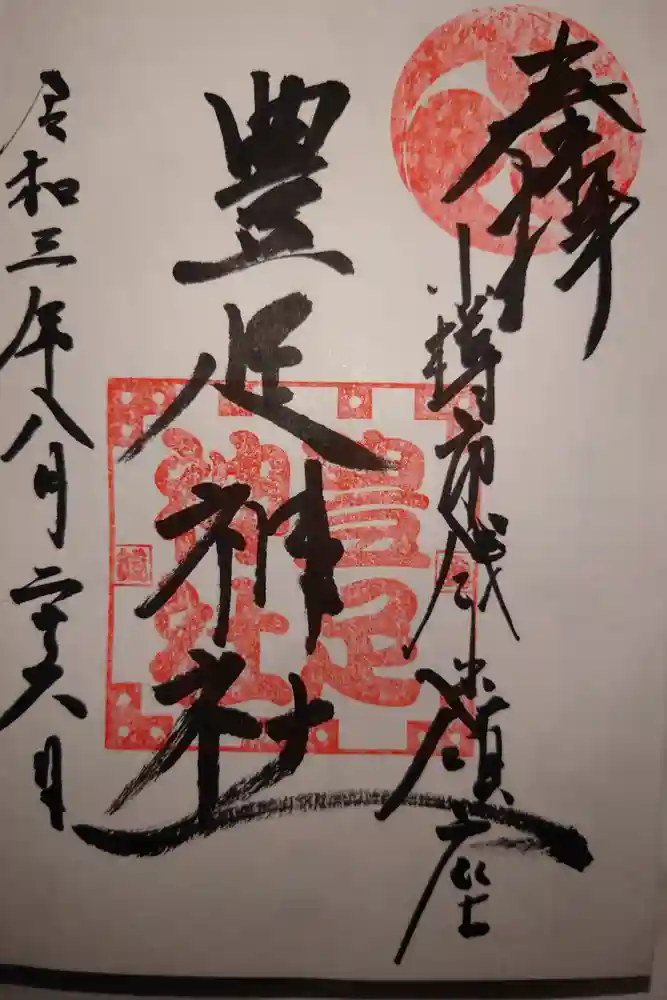 奉拝
小樽市 鎮座
豊足神社
令和三年八月二十八日
豊足
神社